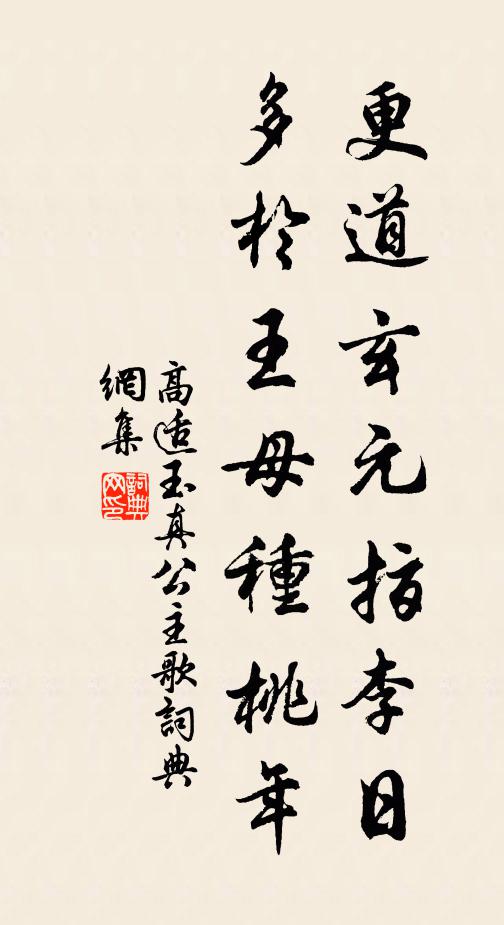 更道玄元指李日
多於王母種桃年
高适玉真公主歌詞典
網集
詞典網印